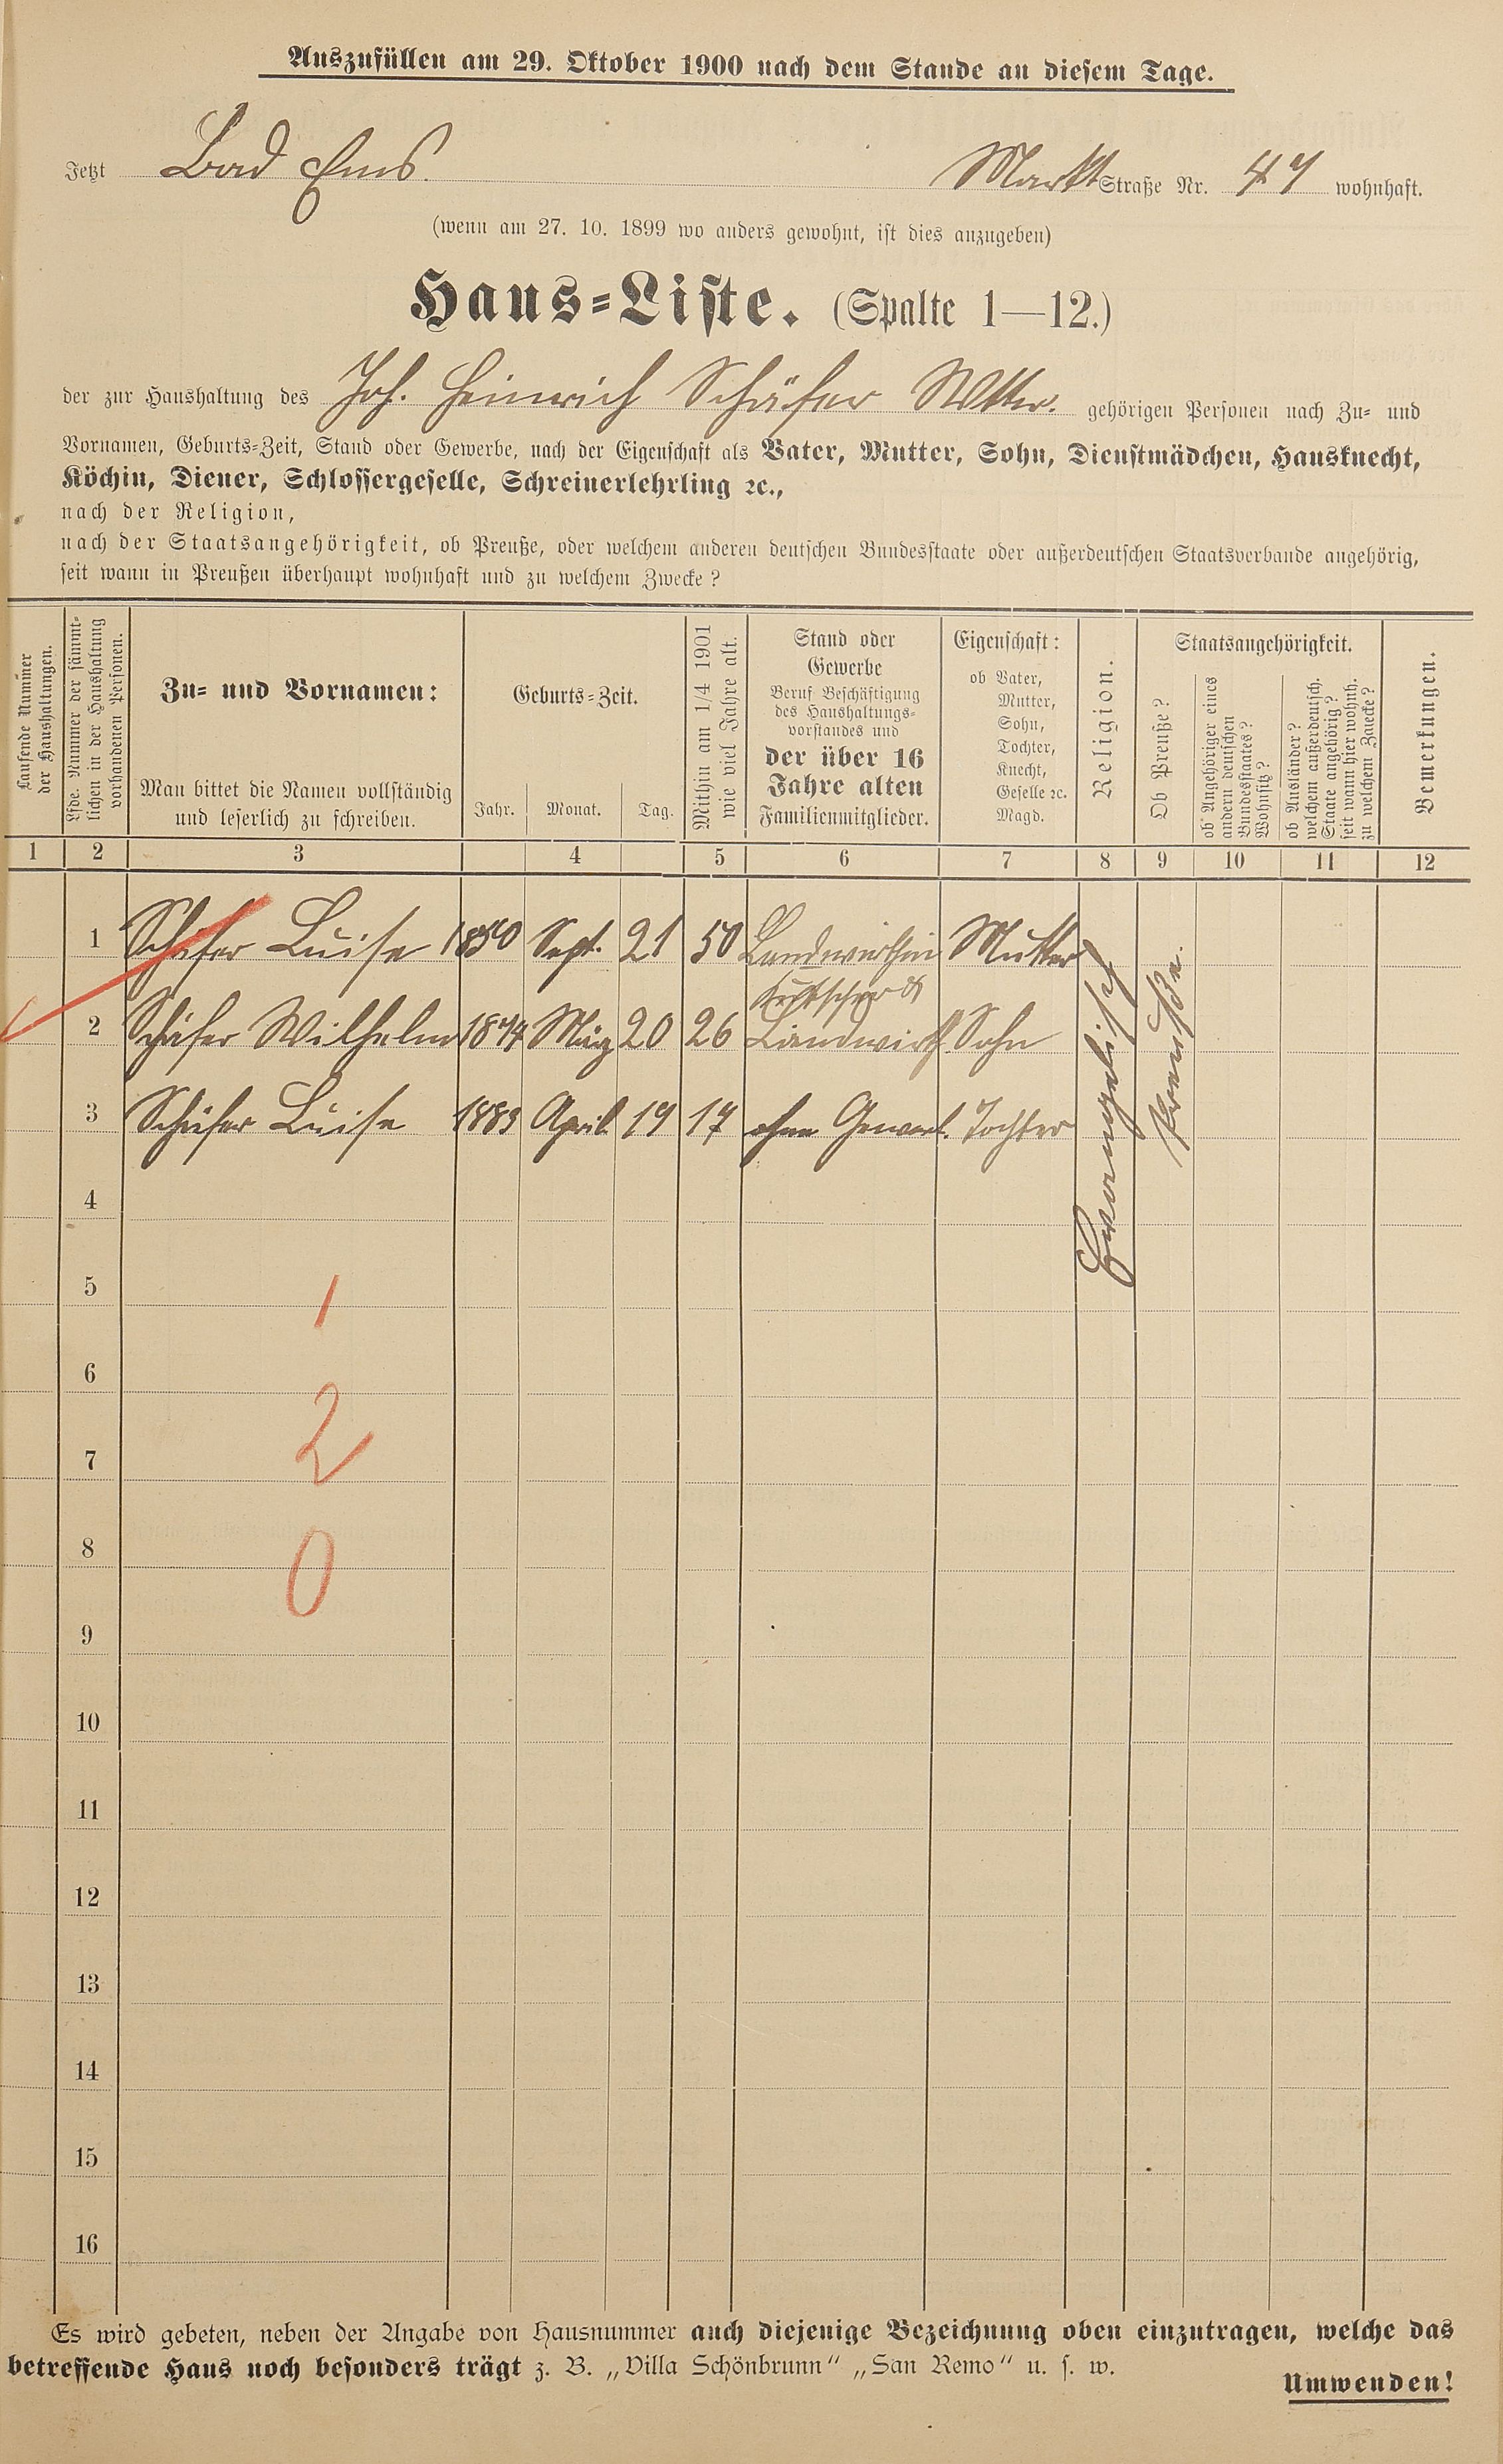 Auszufüllen am 29. Oktober 1900 nach dem Stande an diesem Tage.
Jetzt Bad Ems. Markt Straße Nr. 47 wohnhaft.
(wenn am 27. 10. 1899 wo anders gewohnt, ist dies anzugeben)
Haus-Liste. (Spalte 1—12.)
der zur Haushaltung des Joh. Heinrich Schäfer Wtw. gehörigen Personen nach Zu- und
Vornamen, Geburts-Zeit, Stand oder Gewerbe, nach der Eigenschaft als Vater, Mutter, Sohn, Dienstmädchen, Hausknecht,
Köchin, Diener, Schlossergeselle, Schreinerlehrling ꝛc.,
nach der Religion,
nach der Staatsangehörigkeit, ob Preuße, oder welchem anderen deutschen Bundesstaate oder außerdeutschen Staatsverbande angehörig,
seit wann in Preußen überhaupt wohnhaft und zu welchem Zwecke?
Laufende Nummer
der Haushaltungen.
Lfde. Nummer der sämmt-
lichen in der Haushaltung
vorhandenen Personen.
Zu- und Vornamen:
Man bittet die Namen vollständig
und leserlich zu schreiben.
Geburts-Zeit.
Jahr. Monat. Tag.
Mithin am 1/4 1901
wie viel Jahre alt.
Stand oder
Gewerbe
Beruf Beschäftigung
des Haushaltungs-
vorstandes und
der über 16
Jahre alten
Familienmitglieder.
Eigenschaft:
ob Vater,
Mutter,
Sohn,
Tochter,
Knecht,
Geselle ꝛc.
Magd.
Religion.
Staatsangehörigkeit.
Ob Preuße?
ob Angehöriger eines
andern deutschen
Bundesstaates?
Wohnsitz?
ob Ausländer?
welchem außerdeutsch.
Staate angehörig?
seit wann hier wohnh.
zu welchem Zwecke?
Bemerkungen.
1 2 3 4 5 6 7 8 9 10 11 12
1 Schäfer Luise 1850 Sept. 21 50 Landwirthin Mutter
Kutscher &
2 Schäfer Wilhelm 1874 März 20 26 Landwirth Sohn
3 Schäfer Luise 1883 April 19 17 ohne Gewerb. Tochter
Evangelisch
Preuße.
4
5
1
6
2
7
8
0
9
10
11
12
13
14
15
16
Es wird gebeten, neben der Angabe von Hausnummer auch diejenige Bezeichnung oben einzutragen, welche das
betreffende Haus noch besonders trägt z. B. „Villa Schönbrunn“ „San Remo“ u. s. w.
Umwenden!